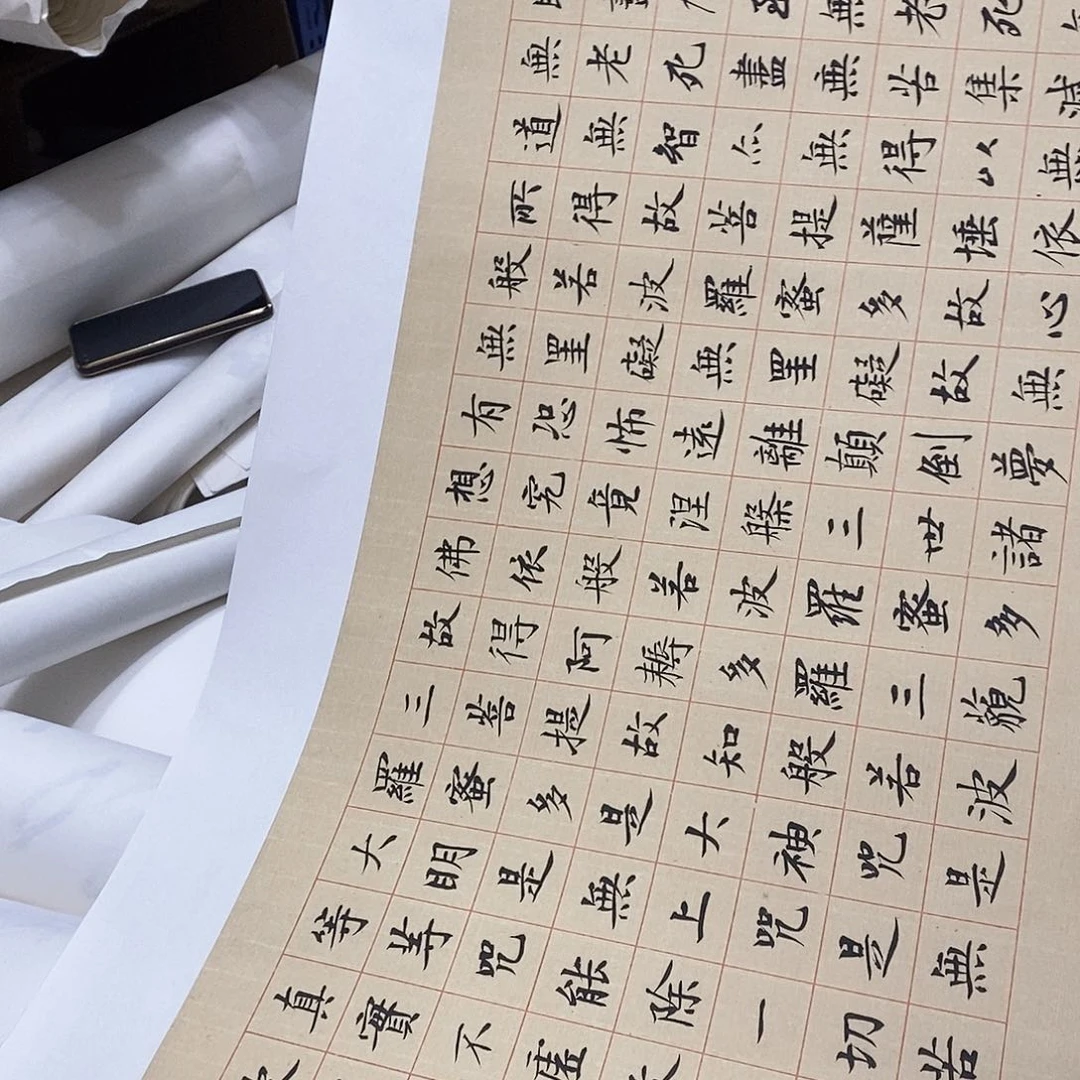 至無老死
無老死盡無苦集滅
道無智亦無得以無
所得故菩提薩埵依
般若波羅蜜多故心
無罣礙無罣礙故無
有恐怖遠離顛倒夢
想究竟涅槃三世諸
佛依般若波羅蜜多
故得阿耨多羅三藐
三菩提故知般若波
羅蜜多是大神咒是
大明是無上咒是無
等等咒能除一切苦
真實不虛